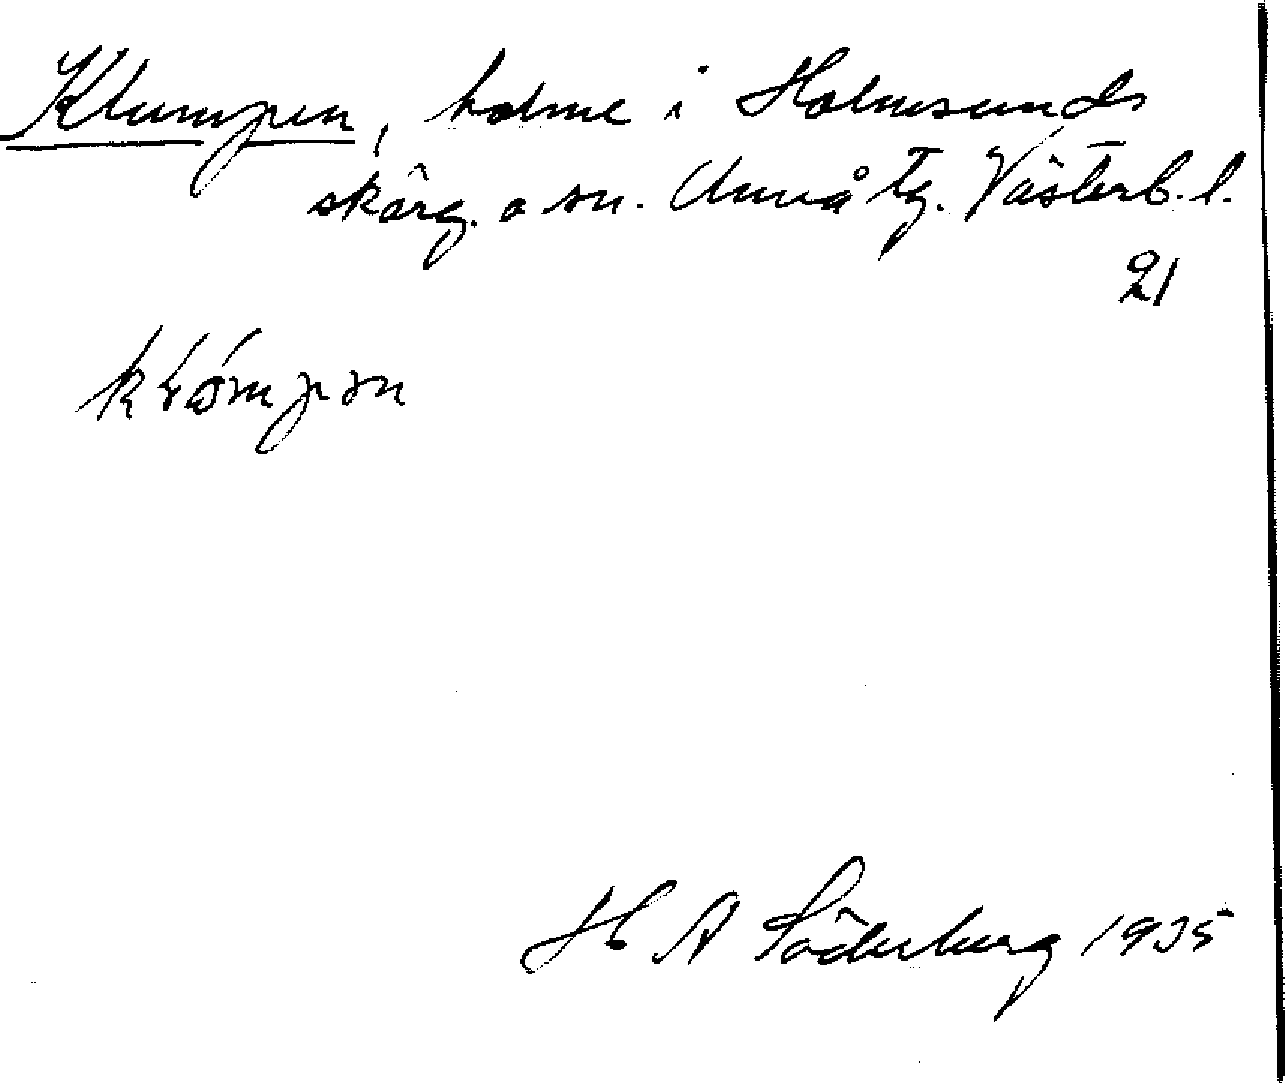 Klumpen, holme i Holmsunds
skärg. o sn. Umeå tg. Västerb. l.
21
H A Söderberg 1935